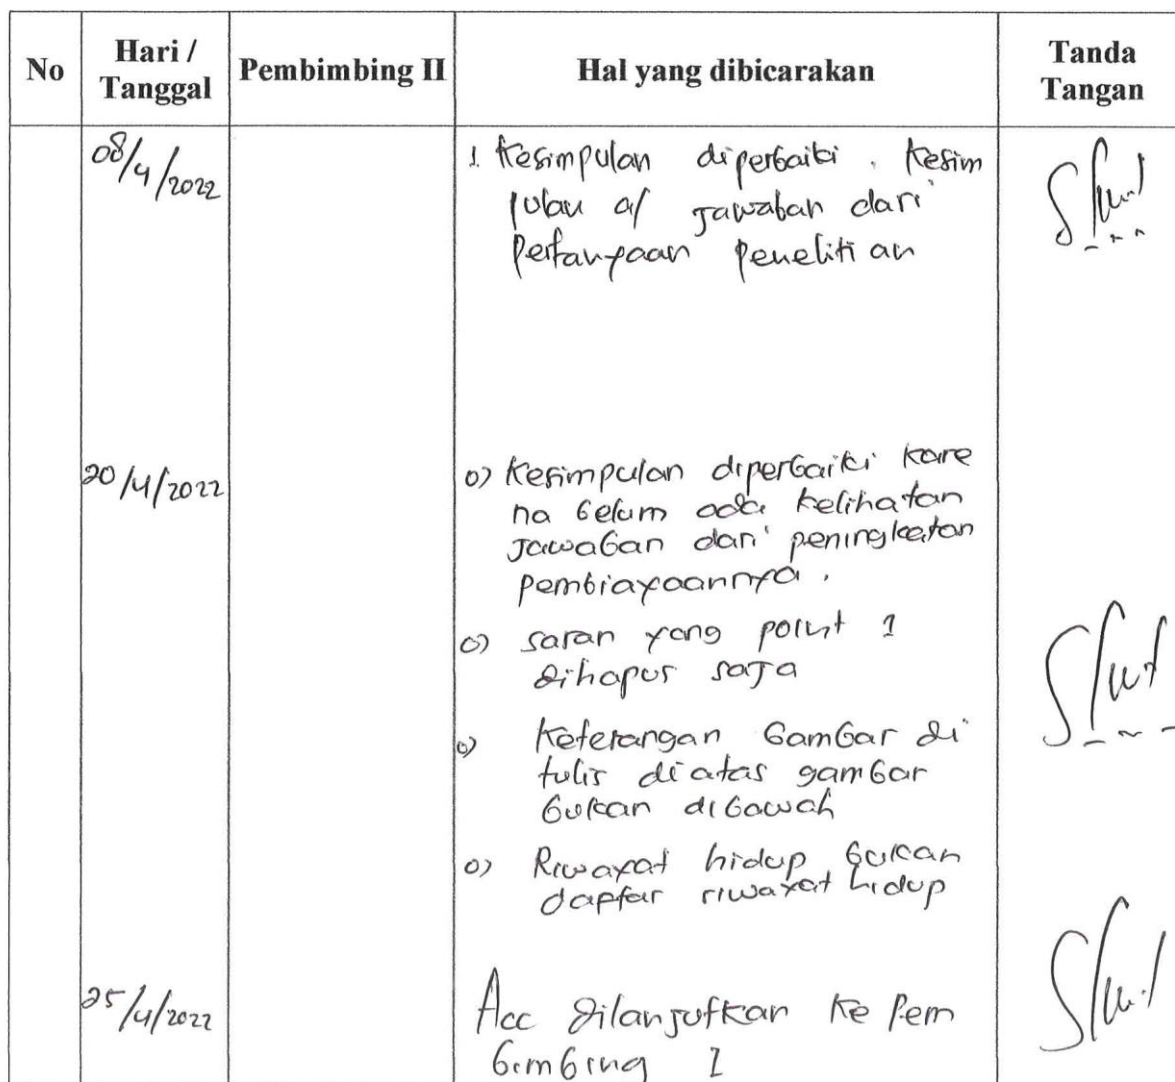 No Hari / Tanggal Pembimbing II Hal yang dibicarakan Tanda Tangan
08/4/2022
1. Kesimpulan diperbaiki. Kesim
pulan a/ Jawaban dari
Pertanyaan penelitian
20/4/2022
o) Kesimpulan diperbaiki kare
na belum ada kelihatan
Jawaban dari peningkatan
pembiayaannya.
o) saran yang point 1
dihapus saja
o) Keterangan Gambar di
tulis diatas gambar
bukan dibawah
o) Riwayat hidup bukan
daftar riwayat hidup
25/4/2022
Acc dilanjutkan ke Pem
bimbing I